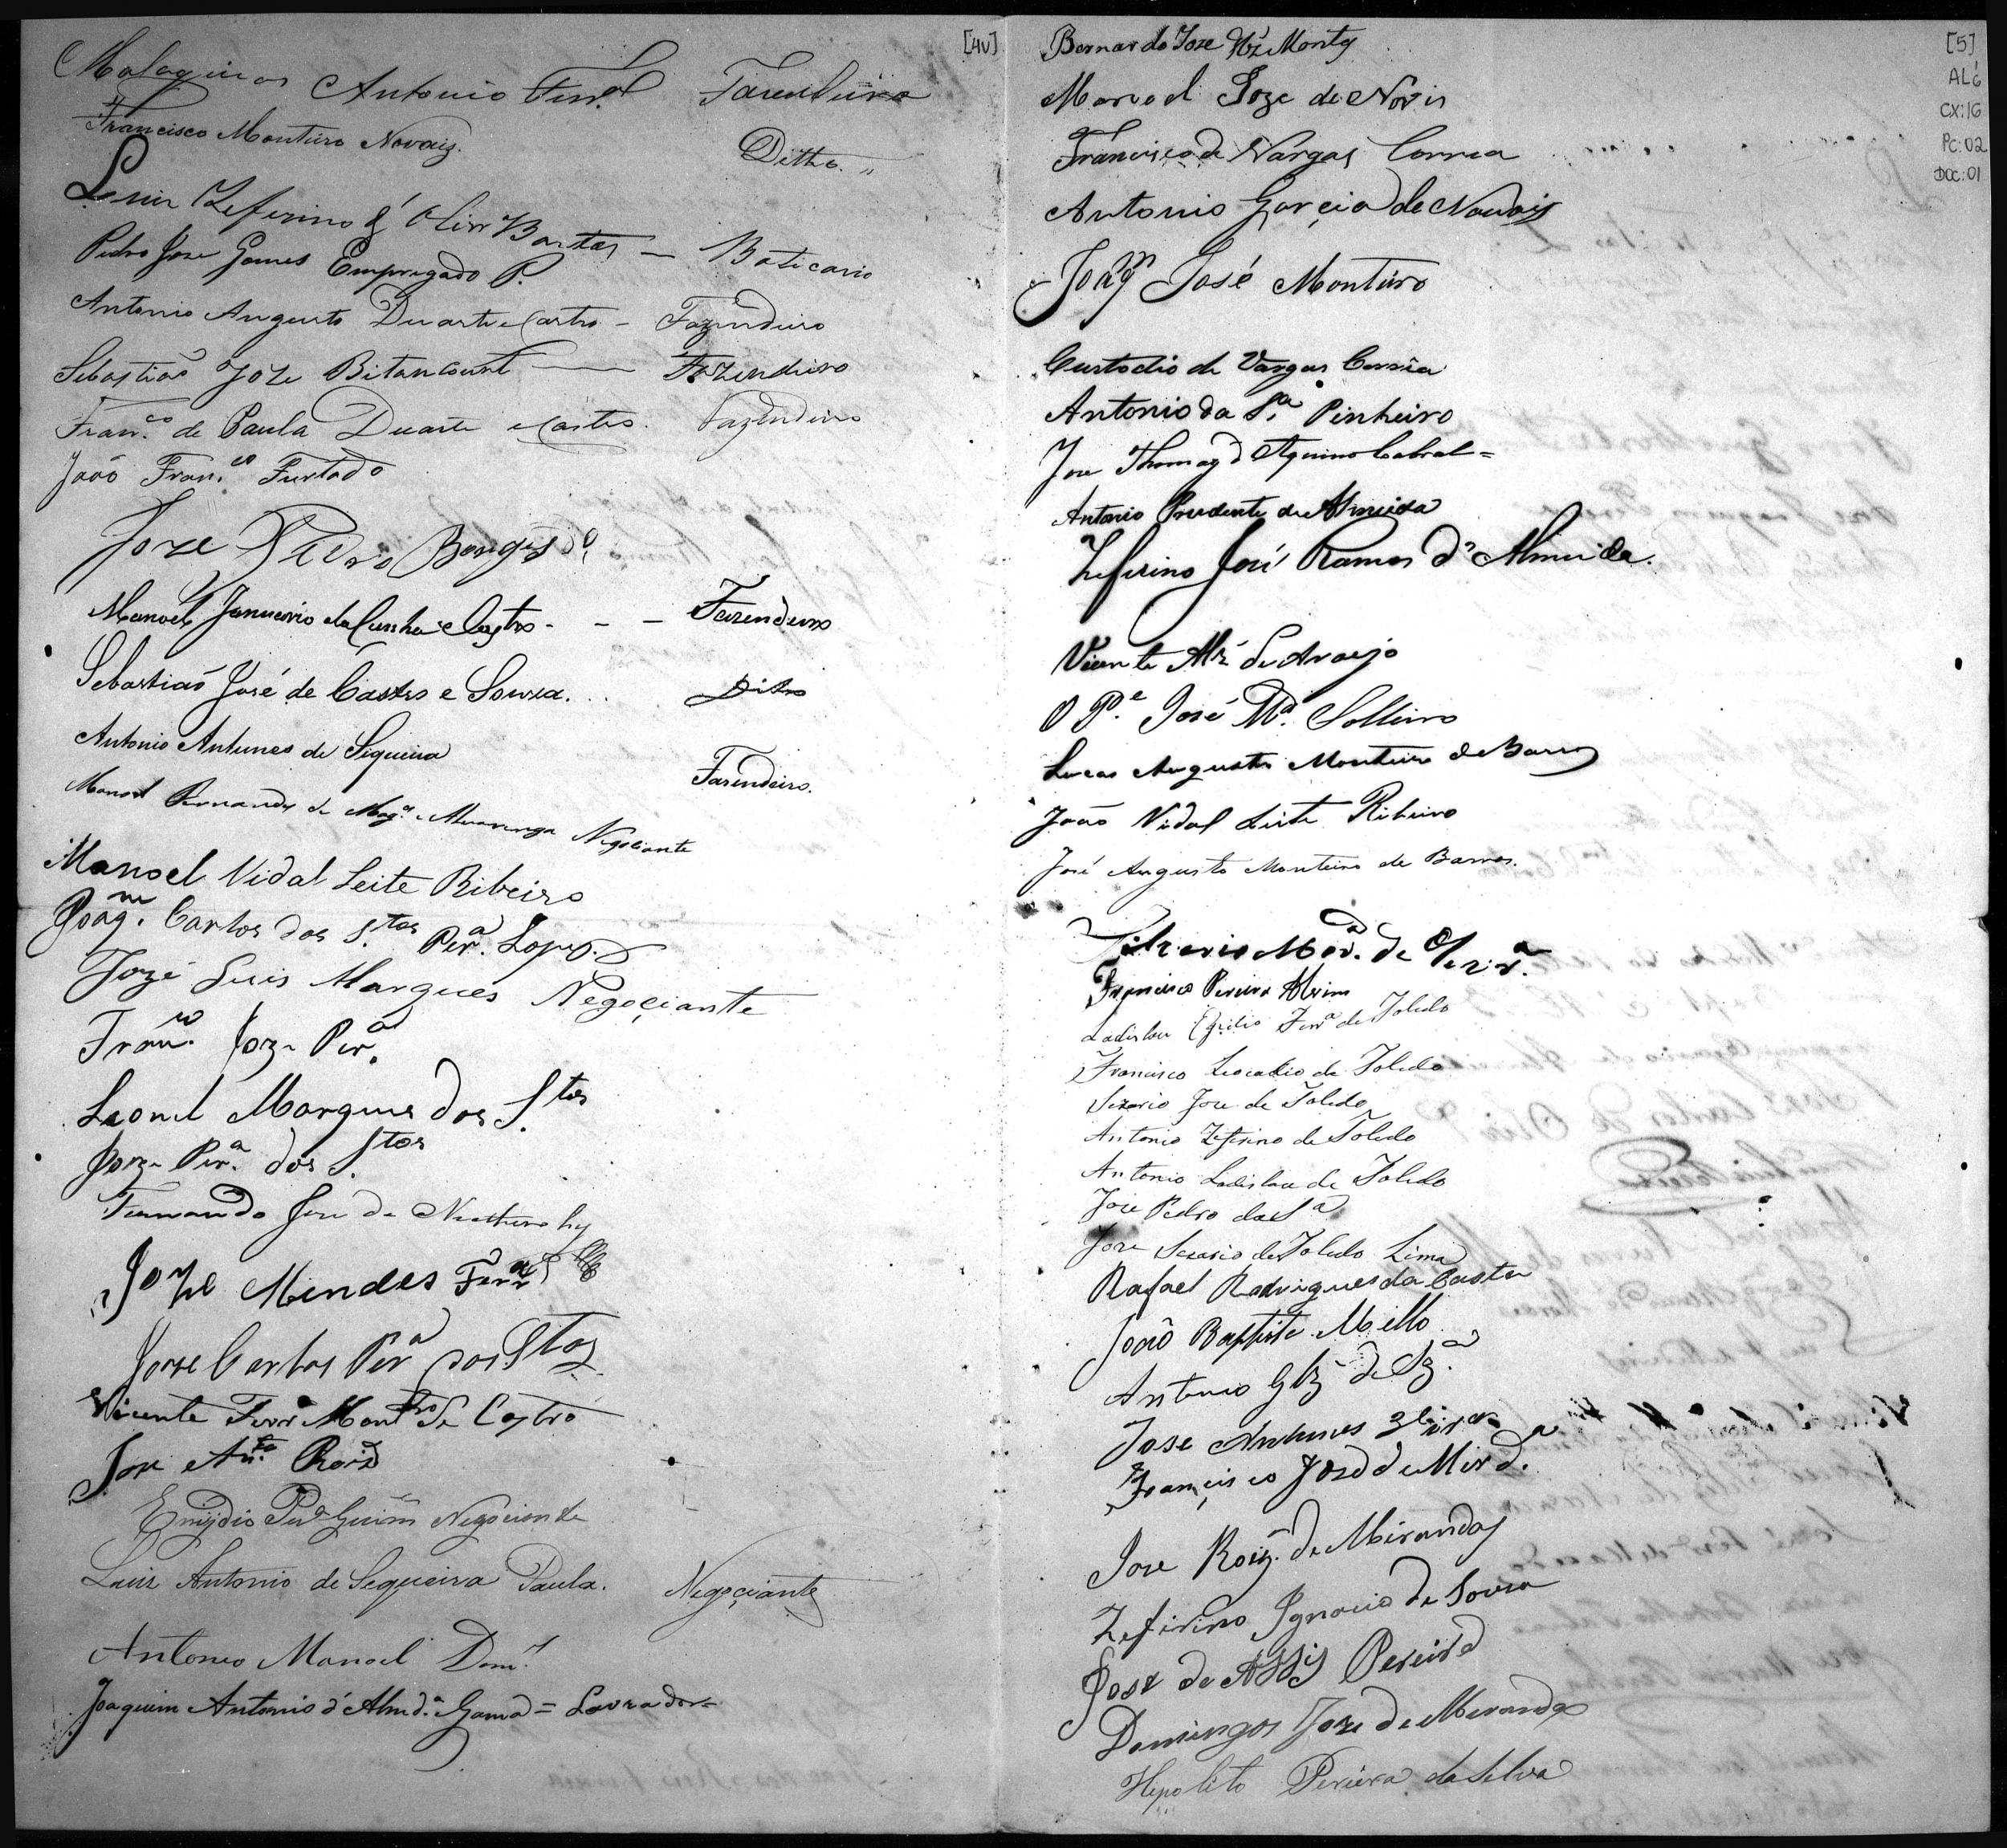 [4v]
Malaquias Antonio Ferr.ª Fazendeiro
Francisco Monteiro Novaiz. Ditto. "
Luiz Zeferino d' Olivr.ª Bastos — Boticario
Pedro Jose Gomes Empregado P.
Antonio Augusto Duarte e Castro – Fazendeiro
Sebastião Joze Bitancourt — Fazendeiro
Fran.co de Paula Duarte e Castro. Fazendeiro
João Fran.co Furtado
Joze Pedro Borges
Manoel Januario da Cunha e Castro - - - Fazendeiro
Sebastião José de Castro e Souza. . . Ditro
Antonio Antunes de Siqueira Fazendeiro.
Manoel Fernandes de Mag.es Alvarenga Negociante
Manoel Vidal Leite Ribeiro
Joaq.m Carlos dos S.tos Per.ª Lopes.
Jozé Luis Marques Negoçiante
Fran.co Joze Per.ª
Leonel Marques dos S.tos
Joze Per.ª dos S.tos
Fernando Jose de
Joze Mendes Ferrª
Joze Carlos Perª dos Stos
Vicente Ferrª Montro de Castro
Jose Ant.º Roiz
Emijdio Perª Guim Negociante
Luiz Antonio de Sequeira Paula. Negoçiante
Antonio Manoel Dom.
Joaquim Antonio d'Almd.ª Gama = Lavrador=
[5]
AL6
CX:16
PC:02
DOC:01
Bernardo Joze Montr
Manoel Joze de Novis
Francisco de Vargas Correa
Antonio Garçia de Novais
Joaqm José Monteiro
Custodio de Vargas Corrêa
Antonio da S.ª Pinheiro
Joze Thomaz d Aquino Cabral =
Antonio Prudente de Almeida
Zeferino José Ramos d' Almeida.
Vicente Alz' de Araujo
O P.e José M.ª Solleiro
Lucas Augusto Monteiro de Barros
João Vidal Leite Ribeiro
José Augusto Monteiro de Barros.
Silverio de
Francisco Pereira Alvim
Ladislau Ferrª de Toledo
Francisco Leocadio de Toledo
Sezario Jose de Toledo
Antonio Zeferino de Toledo
Antonio Ladislau de Toledo
Joze Pedro da Sª
Joze Sezario de Toledo Lima
Rafael Rodrigues da Costa
João Baptista Mello
Antonio Glz de Sz.ª
Jose Antunes
Françisco José de Mird.ª
Joze Roiz. de Miranda
Zefirino Ignacio de Souza
José de Assis Pereira
Domingos Joze de Meranda
Hepolito Pereira da Silva